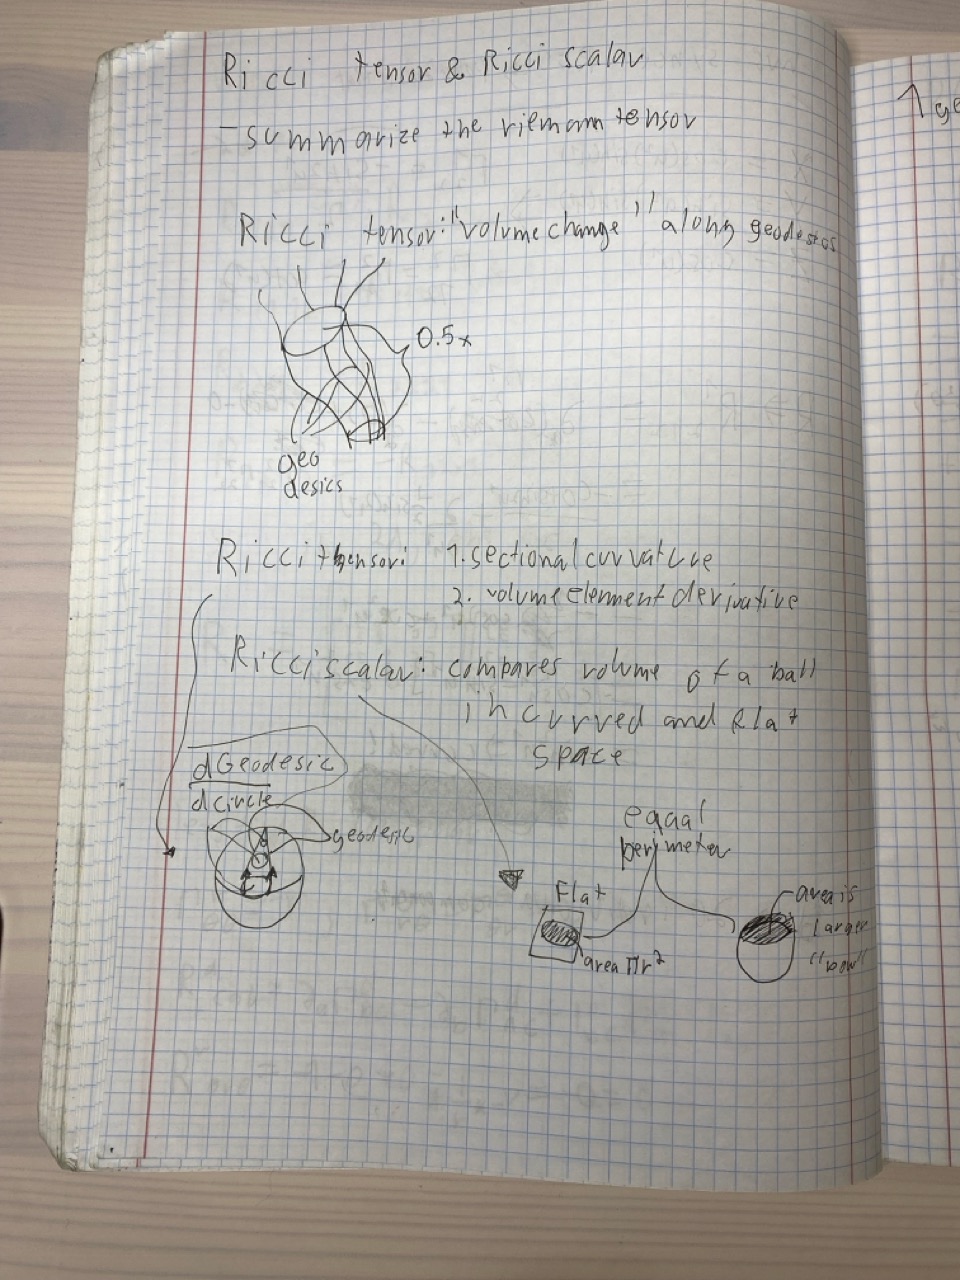 Ricci tensor & Ricci scalar
- summarize the riemann tensor
Ricci tensor: "volume change" along geodesics
0.5x
geo
desics
Ricci tensor: 1. sectional curvature
2. volume element derivative
Ricci scalar: compares volume of a ball
in curved and flat
space
dGeodesic
dcircle
geodesic
equal
perimeter
Flat
area πr²
area is
larger
"bowl"
↑ ge